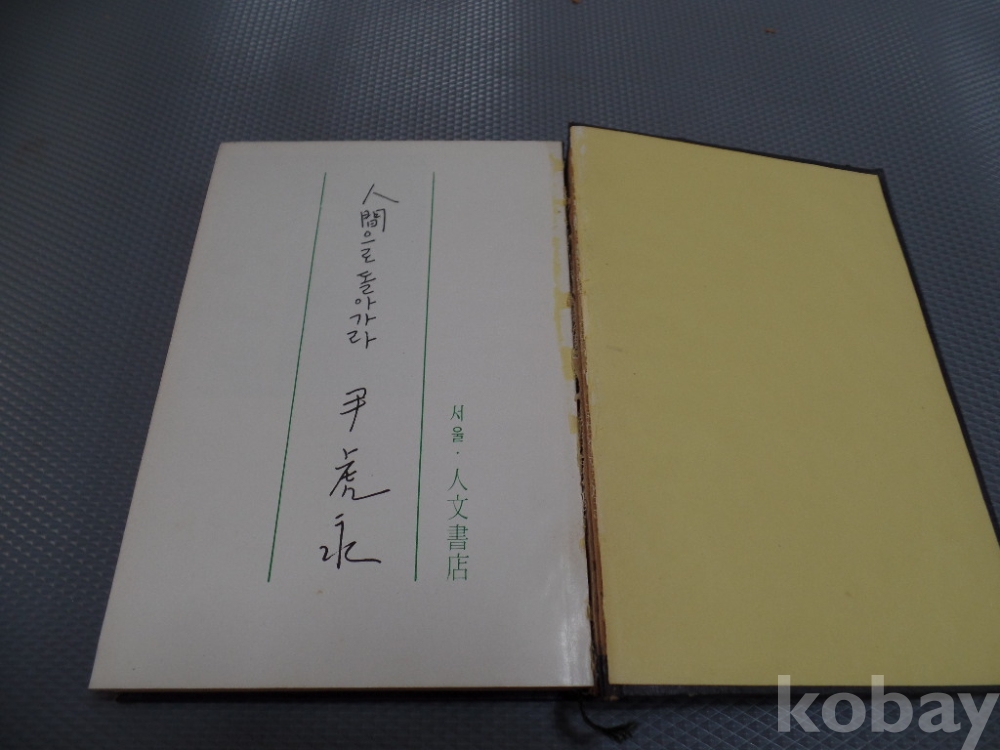 서울·人文書店
人間으로 돌아가라
尹虎永
kobay